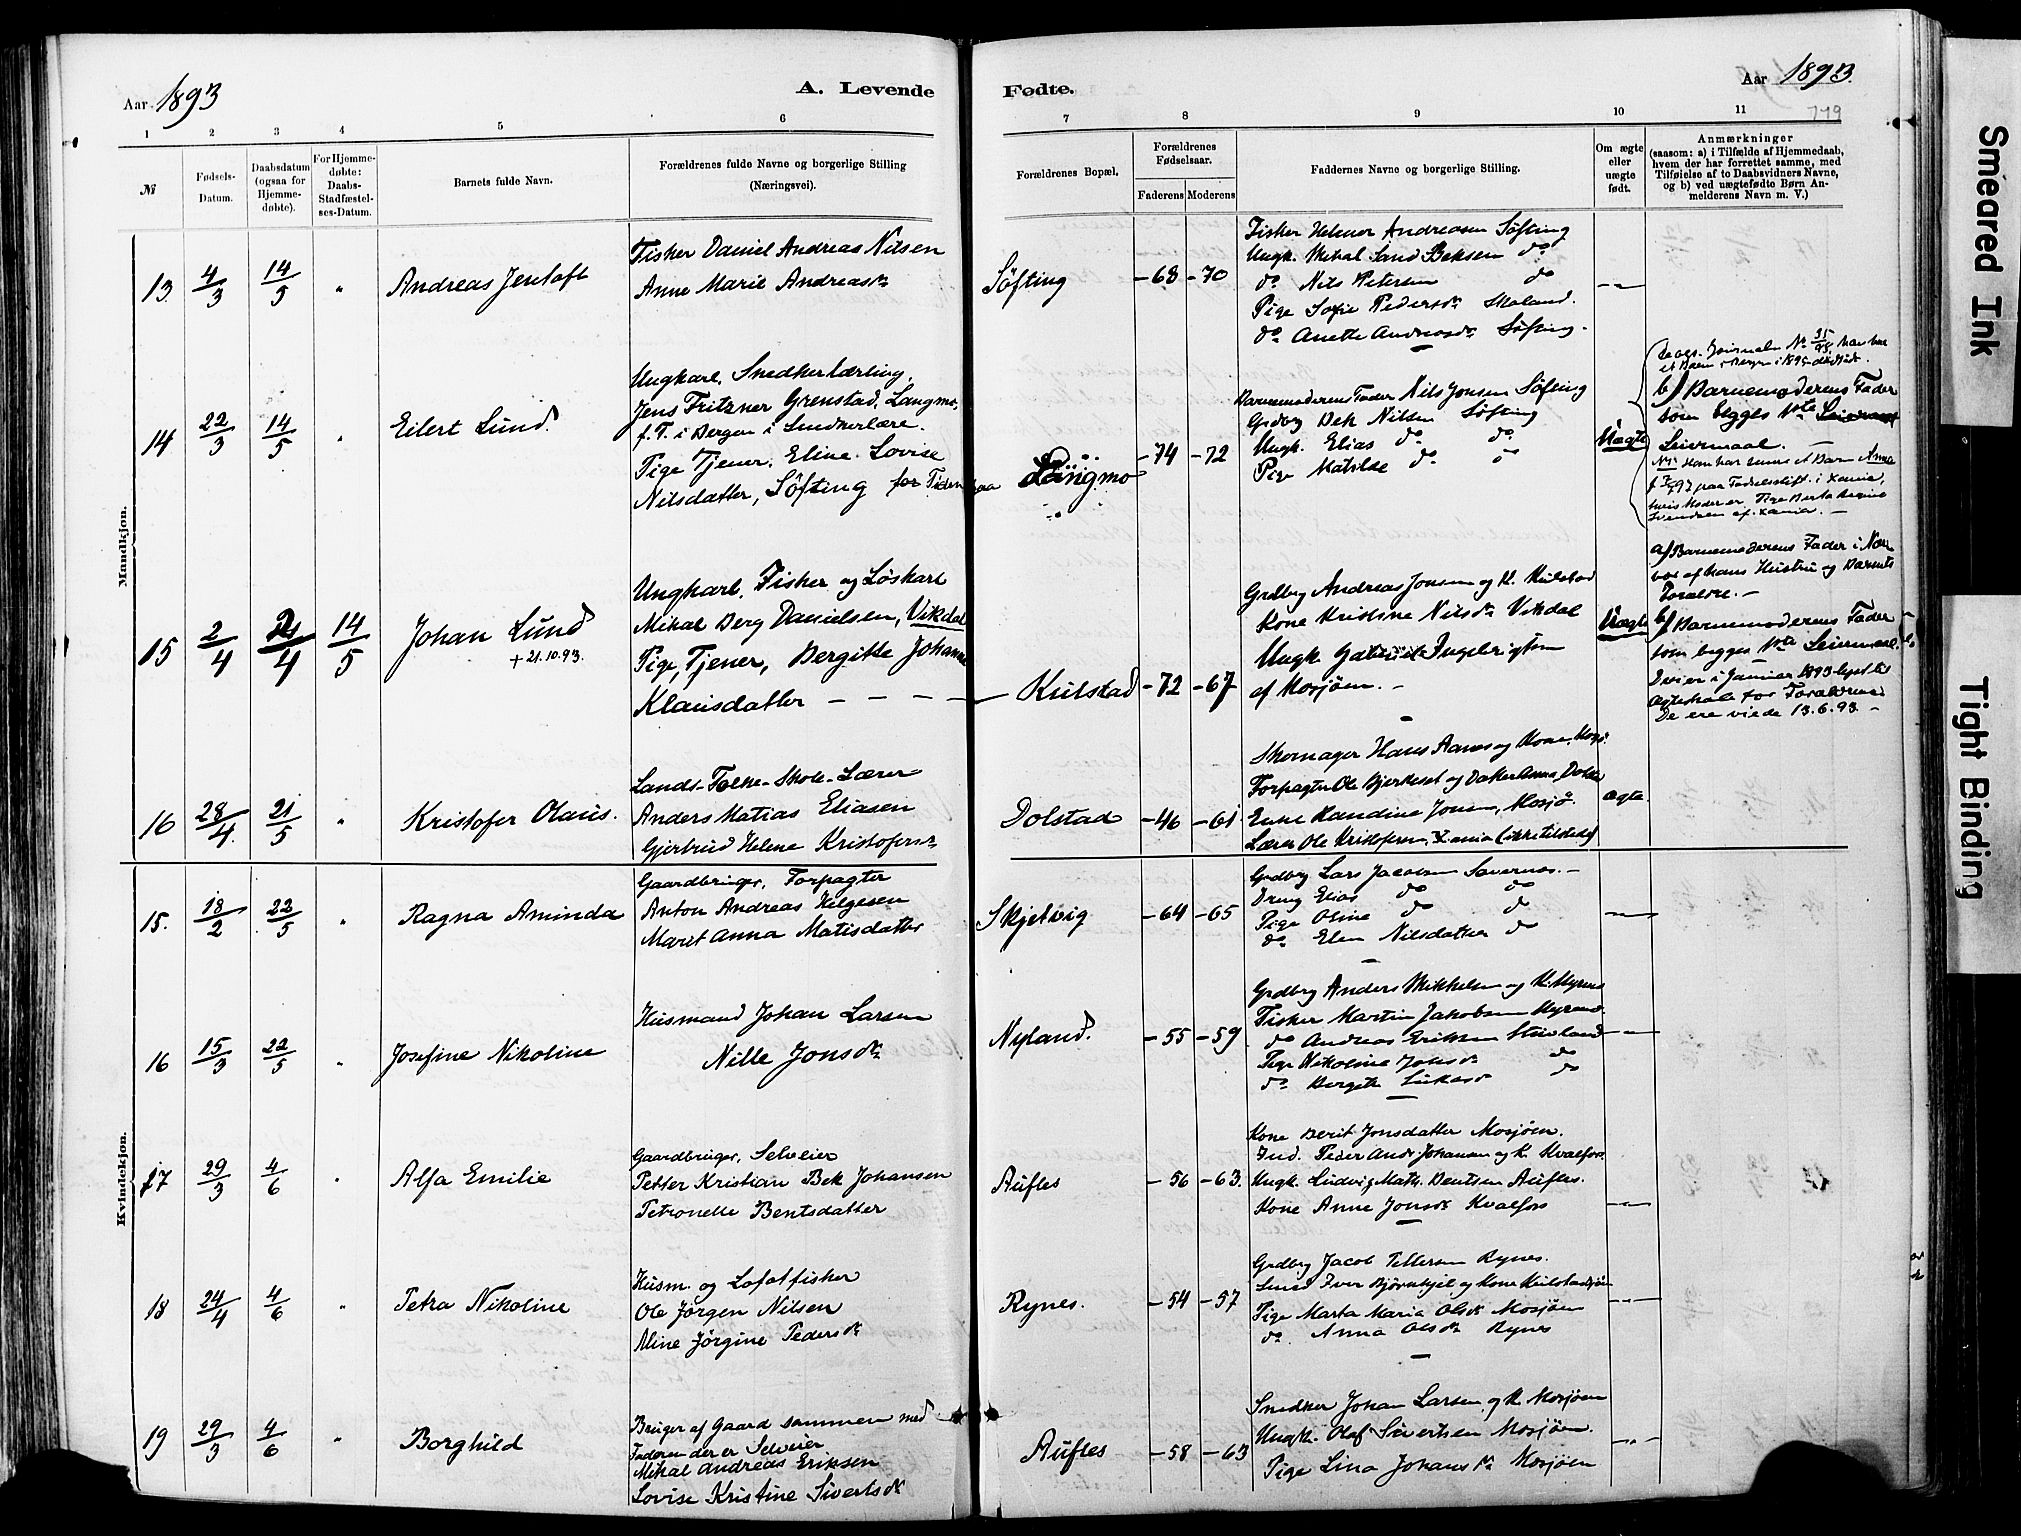 Aar 1893
A. Levende
1
2
3
4
5
6
№
Fødsels-
Datum.
Daabsdatum
(ogsaa for
Hjemme-
døbte).
For Hjemme-
døbte:
Daabs-
Stadfæstel-
ses-Datum.
Barnets fulde Navn.
Forældrenes fulde Navne og borgerlige Stilling
(Næringsvei).
Mandkjøn.
13
4/3
14/5
"
Andreas Jentoft
Fisker Daniel Andreas Nilsen
Anne Marie Andreasdr
14
22/3
14/5
"
Eilert Lund
Ungkarl, Snedkerlærling,
Jens Fritzner Grenstad, Langmo,
f. T. i Bergen i Snedkerlære.
Pige, Tjener, Eline Lovise
Nilsdatter, Søfting for Tiden paa
15
2/4
2/4
14/5
Johan Lund
+ 21.10.93.
Ungkarl, Fisker og Løskarl
Mikal Berg Danielsen, Vikdal
Pige, Tjener, Bergitte Johanna
Klausdatter — — — —
16
28/4
21/5
"
Kristofer Olaus.
Lands-Folke-Skole-Lærer
Anders Matias Eliasen
Gjertrud Helene Kristofersdr
Kvindekjøn.
15.
18/2
22/5
"
Ragna Aminda
Gaardbruger, Forpagter
Anton Andreas Helgesen
Marit Anna Matisdatter
16
15/3
22/5
"
Josefine Nikoline
Husmand Johan Larsen
Nille Jonsdr
17
29/3
4/6
"
Alfa Emilie
Gaardbruger, Selveier
Petter Kristian Bek Johansen
Petronelle Bentsdatter
18
24/4
4/6
"
Petra Nikoline
Husm. og Lofotfisker
Ole Jørgen Nilsen
Aline Jørgine Pedersdr
19
29/3
4/6
"
Borghild
Bruger af Gaard sammen med
Faderen der er Selveier
Mikal Andreas Eriksen
Lovise Kristine Sivertsdr
Fødte.
Aar 1893.
779
7
8
9
10
11
Forældrenes Bopæl,
Forældrenes
Fødselsaar.
Faderens
Moderens
Faddernes Navne og borgerlige Stilling.
Om ægte
eller
uægte
født.
Anmærkninger
(saasom: a) i Tilfælde af Hjemmedaab,
hvem der har forrettet samme, med
Tilføielse af to Daabsvidners Navne,
og b) ved uægtefødte Børn An-
melderens Navn m. V.)
Søfting
-68
-70
Fisker Helmer Andreasen Søfting
Ungk. Mikal Sand Beksen do
do Nils Petersen do
Pige Sofie Pedersdr
do Anette Andreasdr Søfting.
Langmo
-74
-72
Barnemoderens Fader Nils Jonsen Søfting
Grdbrg Bek Nilsen Søfting
Ungk. Elias do do
Pige Matilde do
Uægte
b) Barnemoderens Fader
som begges 1ste
Leiermaal.
Kulstad
-72
-67
Grdbrg Andreas Jonsen og K. Kulstad
Kone Kristine Nilsdr Vikdal
Ungk. Ingebrigtsen
af Mosjøen. —
Uægte
a) Barnemoderens Fader i Nær-
vær af hans Hustru og Barnets
Forældre. —
b) Barnemoderens Fader
som begges 1ste Leiermaal.
De ere i Januar 1893 lyst til
Ægteskab for Forældrene.
De ere viede 13.6.93. —
Dolstad
-46
-61
Skomager Hans Aanes og Kone, Mosj.
Forpagter Ole Bjerkeset og Datter Anna, Dolstad
Enke Randine Jonsen, Mosjø.
Lærer Ole Kristofersen, Xania (ikke tilstede)
Ægte.
Skjetvig
-64
-65
Grdbrg Lars Jacobsen
Dreng Elias do do
Pige Oline do do
do Elen Nilsdatter do
Nyland.
-55
-59
Grdbrg Anders Mikkelsen og K. Myrnes
Fisker Martin Jakobsen Myrnes
do Andreas Eriksen
Pige Nikoline Jonsdr do
do Bergite Lukasdr do
Aufles
-56
-63.
Kone Berit Jonsdatter Mosjøen.
Ind. Peder Andr. Johansen og K. Kvalfors
Ungk. Ludvig Math. Bentsen Aufles.
Kone Anne Jonsdr Kvalfors
Rynes.
-54
-57
Grdbrg Jacob Tellersen Rynes.
Smed Iver Bjørnkjel og Kone Kulstadsjøen
Pige Marta Maria Olsdr Mosjøen
do. Anna Olsdr Rynes
Aufles
-58
-63
Snedker Johan Larsen og K. Mosjøen
Ungk. Olaf Sivertsen Mosjøen.
Pige Lina Johansdr Mosjøen
Smeared Ink
Tight Binding